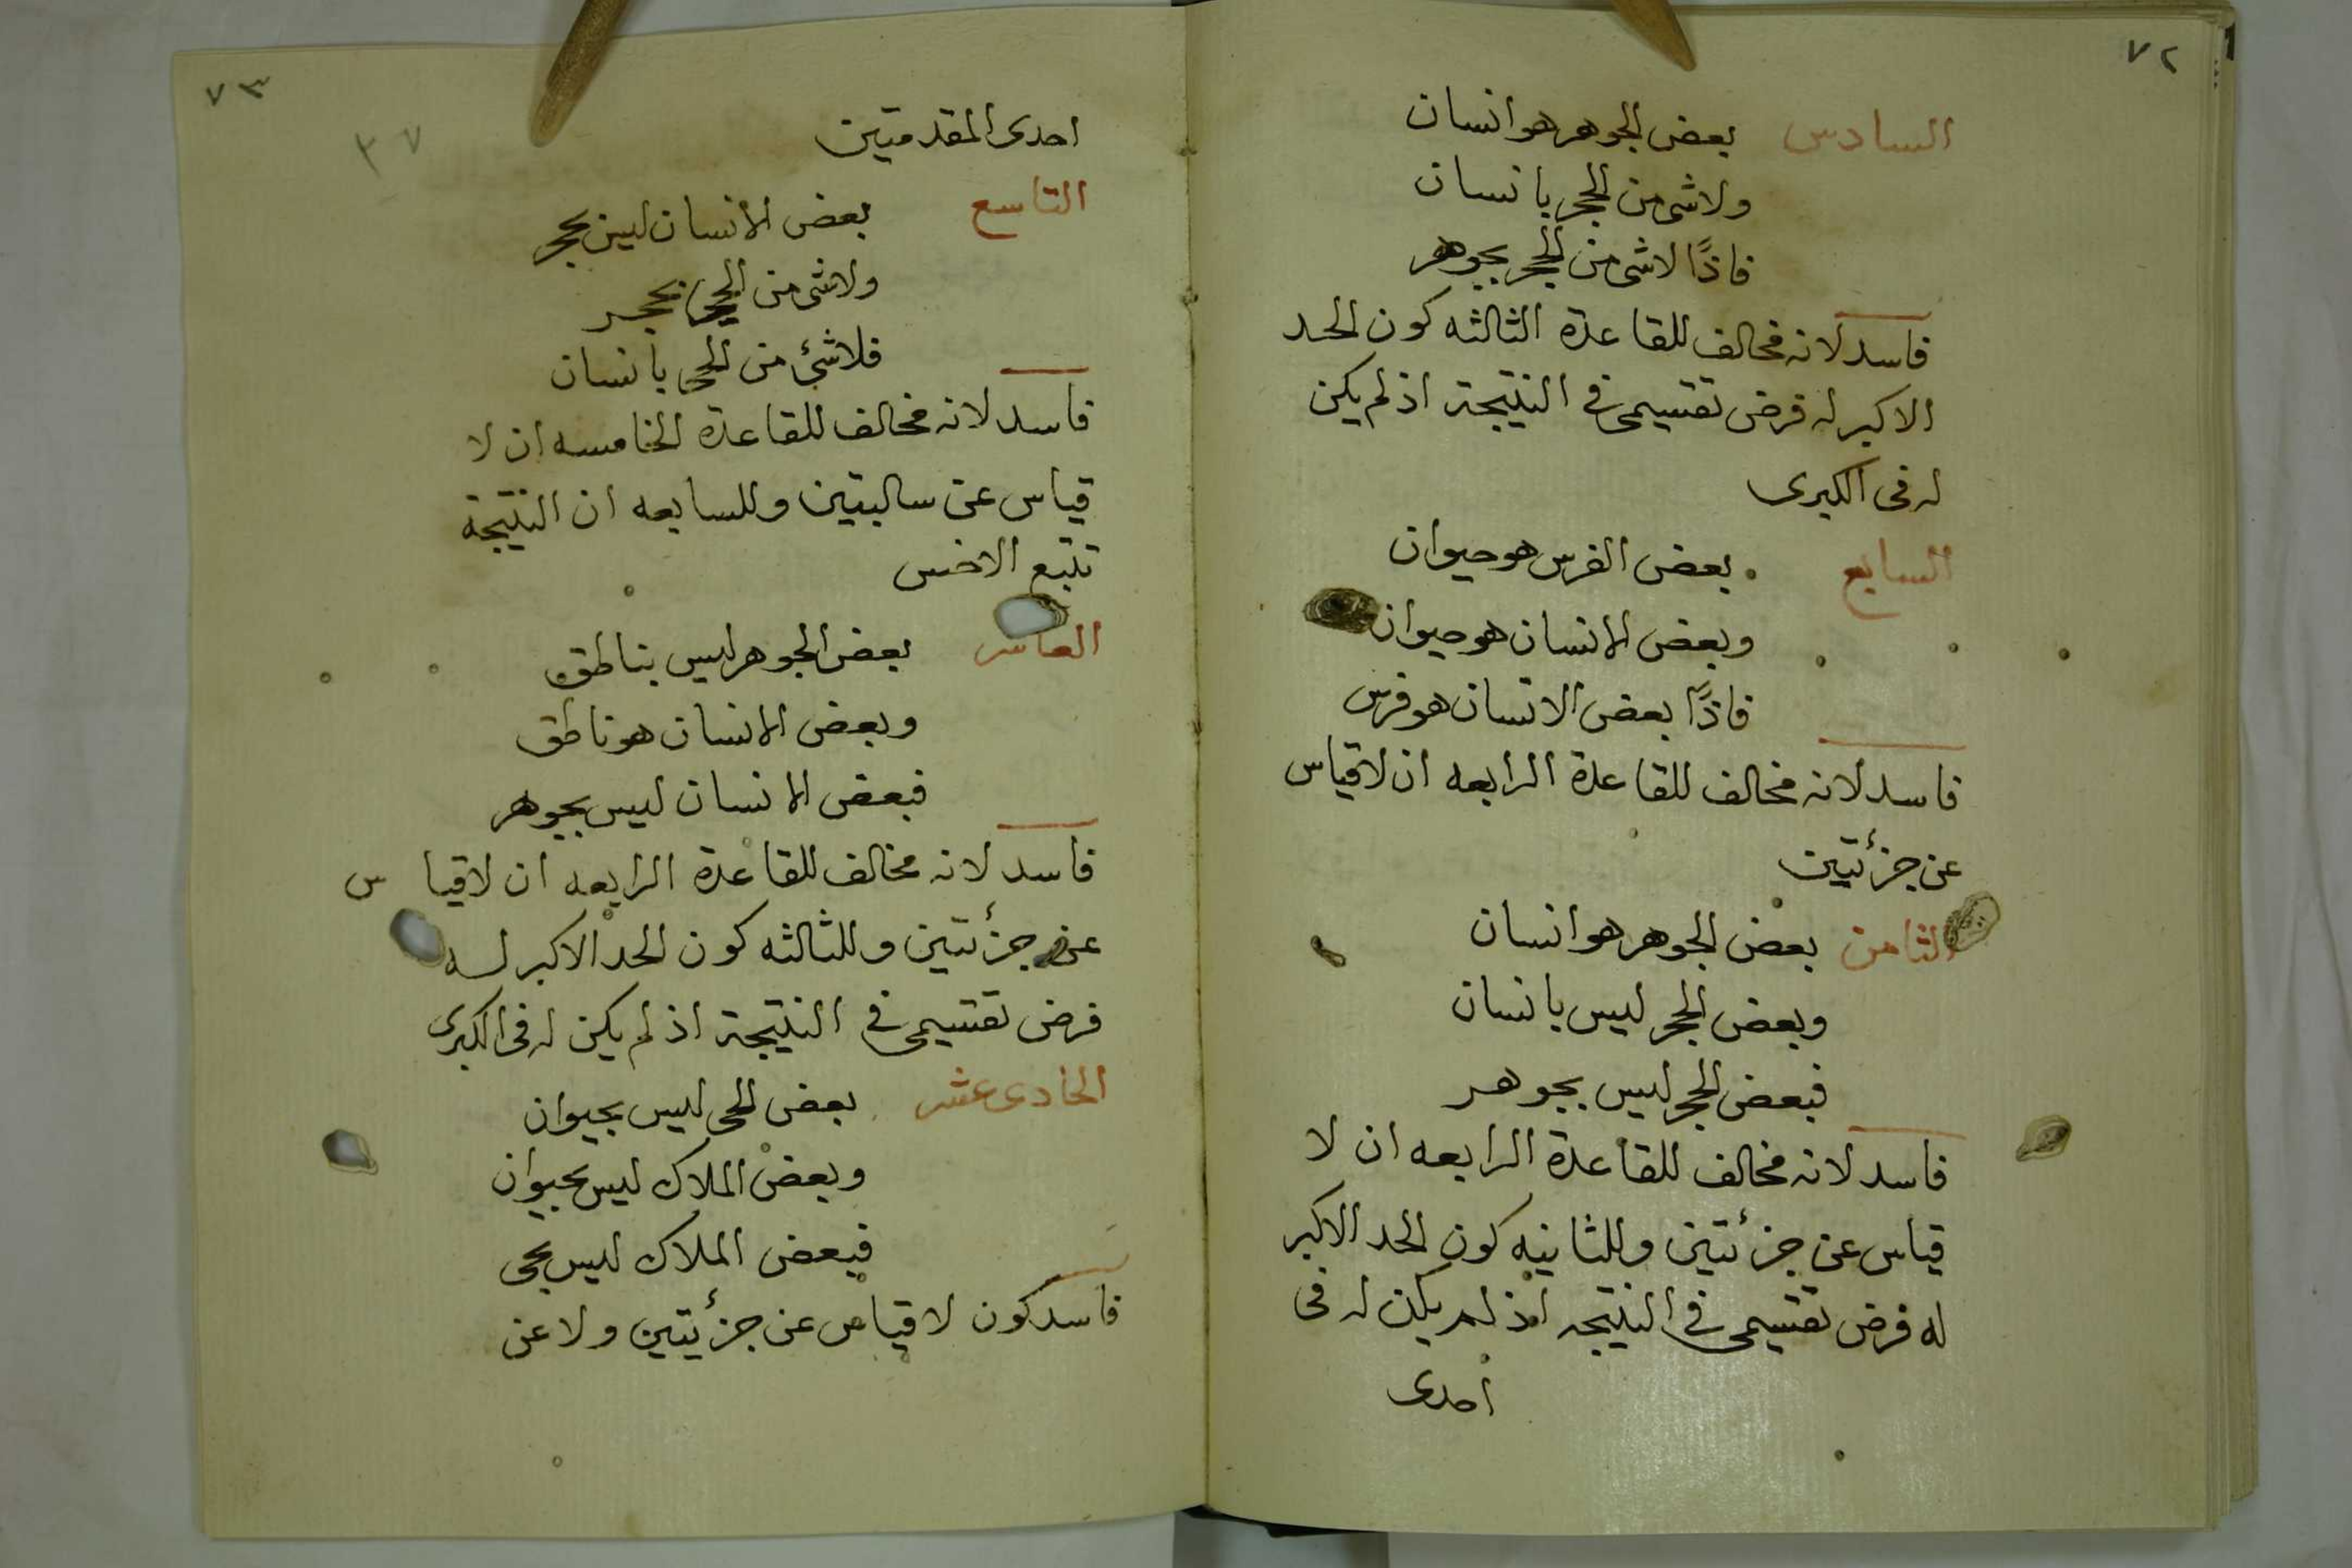 ٧٢
السادس بعض الجوهر هو انسان
ولاشى من الحجر بانسان
فاذًا لاشى من الحجر بجوهر
فاسد لانه مخالف للقاعدة الثالثه كون الحد
الاكبر له فرض تقسيمى فى النتيجة اذ لم يكن
له فى الكبرى
السابع بعض الفرس هو حيوان
وبعض الانسان هو حيوان
فاذًا بعض الانسان هو فرس
فاسد لانه مخالف للقاعدة الرابعه ان لاقياس
عن جزئتين
الثامن بعض الجوهر هو انسان
وبعض الحجر ليس بانسان
فبعض الحجر ليس بجوهر
فاسد لانه مخالف للقاعدة الرابعه ان لا
قياس عن جزئتين وللثانيه كون الحد الاكبر
له فرض تقسيمى فى النتيجه اذ لم يكن له فى
احدى
٧٣
٣٧
احدى المقدمتين
التاسع بعض الانسان ليس بحجر
ولاشى من الحى بحجر
فلاشئ من الحى بانسان
فاسد لانه مخالف للقاعدة الخامسه ان لا
قياس عن سالبتين وللسابعه ان النتيجة
تتبع الاخس
العاشر بعض الجوهر ليس بناطق
وبعض الانسان هو ناطق
فبعض الانسان ليس بجوهر
فاسد لانه مخالف للقاعدة الرابعه ان لاقياس
عن جزئتين وللثالثه كون الحد الاكبر له
فرض تقسيمى فى النتيجة اذ لم يكن له فى الكبرى
الحادى عشر بعض الحى ليس بحيوان
وبعض الملاك ليس بحيوان
فبعض الملاك ليس بحى
فاسد كون لاقياس عن جزئيتين ولا عن